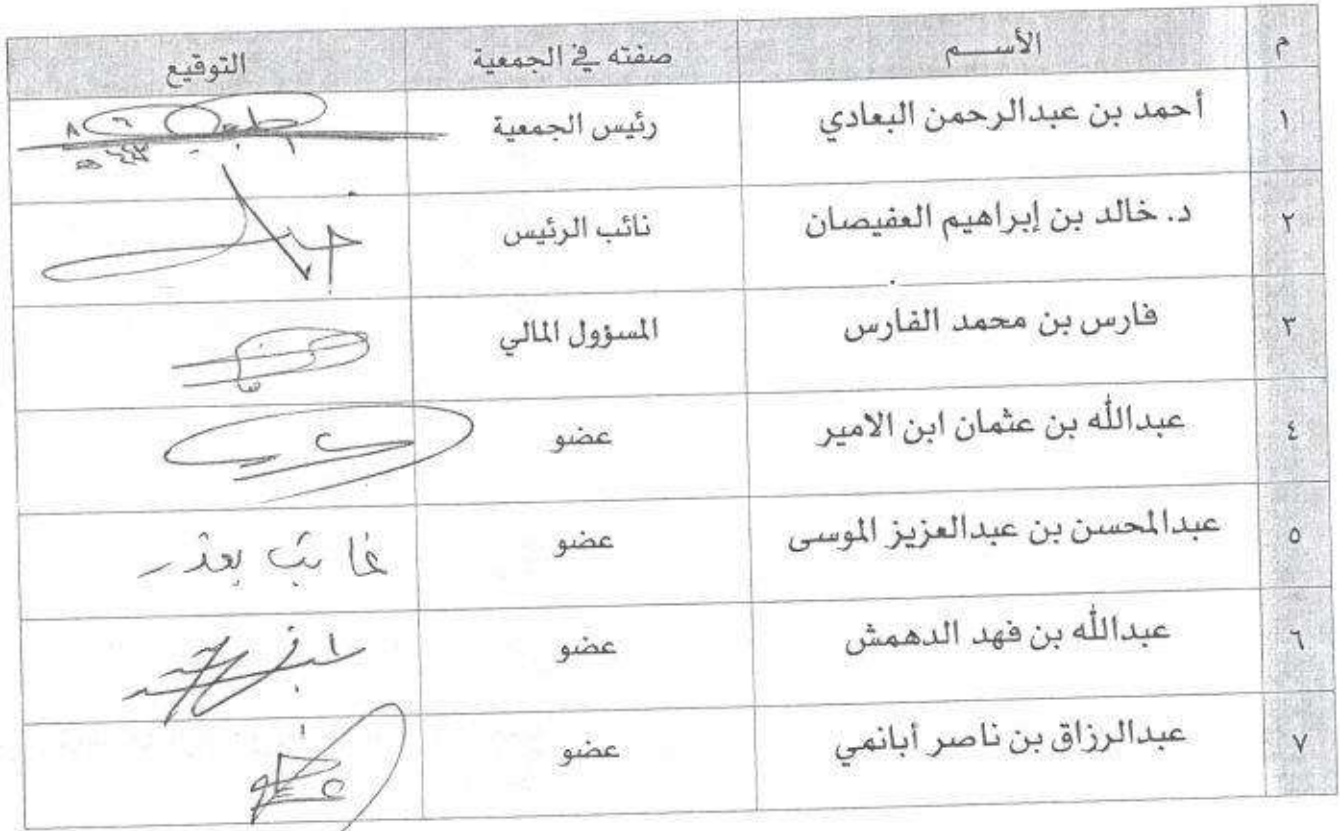 م الأســـم صفته في الجمعية التوقيع
١ أحمد بن عبدالرحمن البعادي رئيس الجمعية
٢ د. خالد بن إبراهيم العفيصان نائب الرئيس
٣ فارس بن محمد الفارس المسؤول المالي
٤ عبدالله بن عثمان ابن الامير عضو
٥ عبدالمحسن بن عبدالعزيز الموسى عضو غائب بعذر
٦ عبدالله بن فهد الدهمش عضو
٧ عبدالرزاق بن ناصر أبانمي عضو